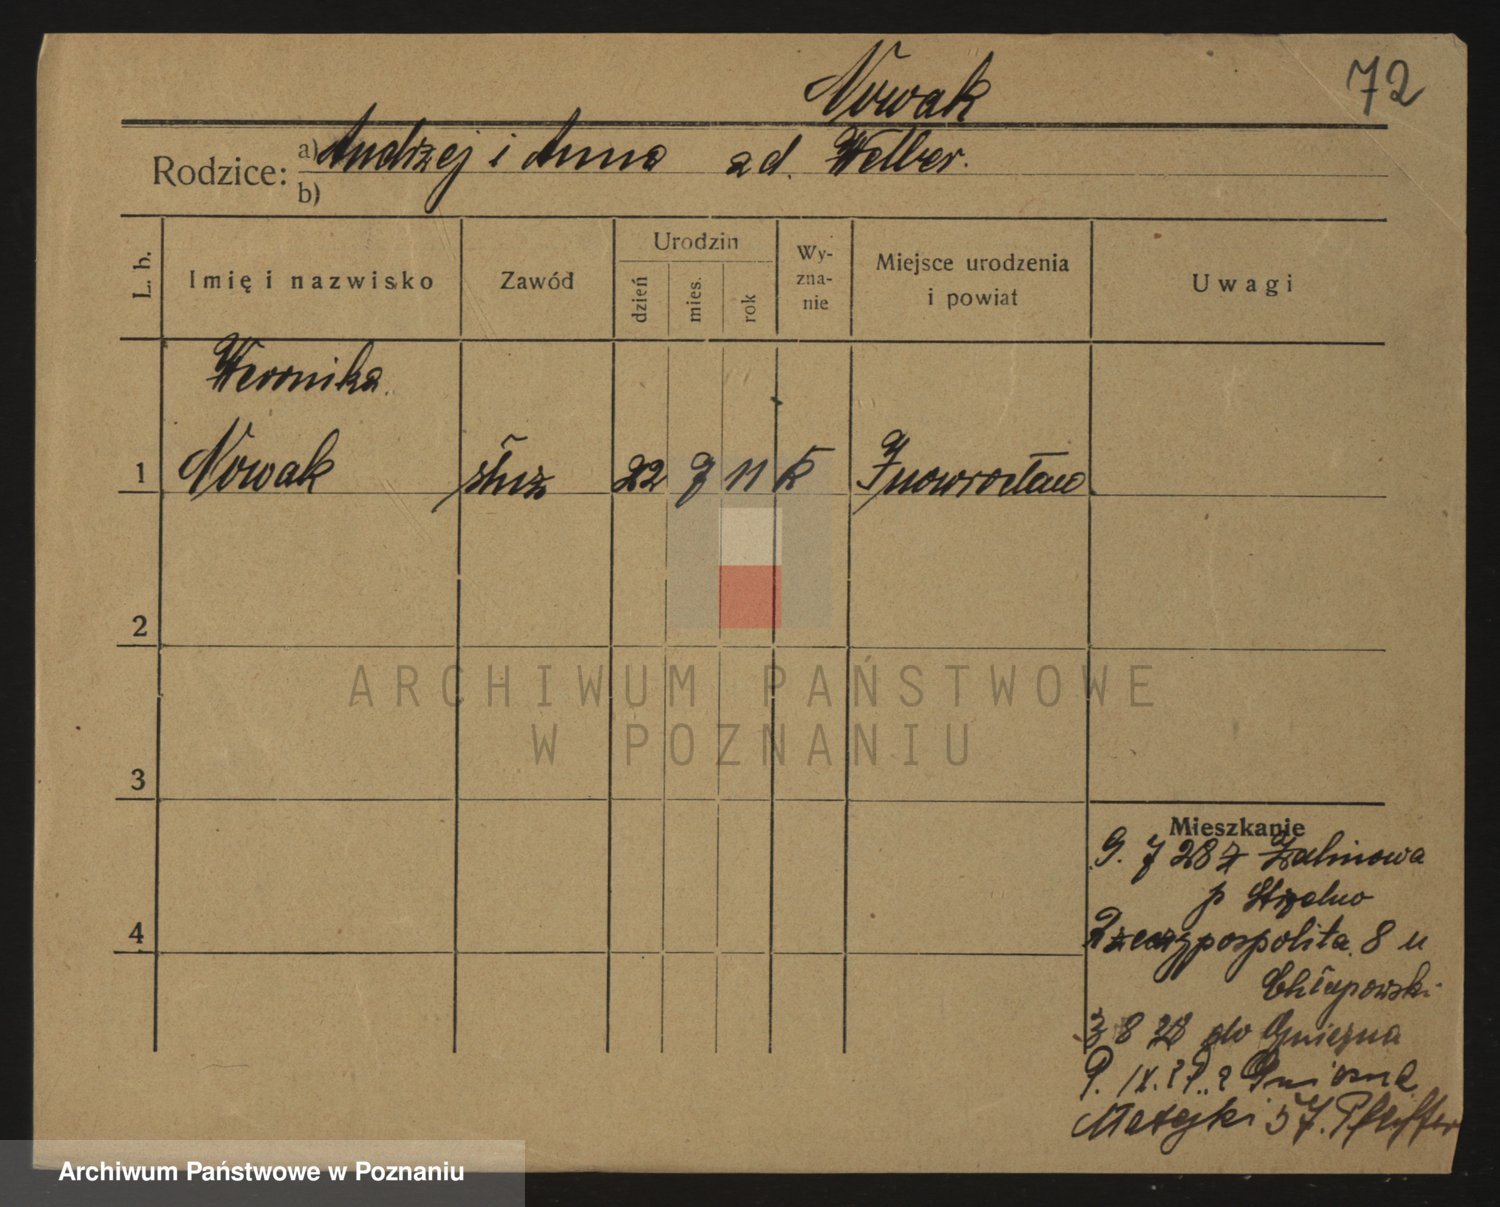 Nowak
72
Rodzice: a) Andrzej i Anna zd. Welber.
b)
L. b.
Imię i nazwisko
Zawód
Urodzin
dzień
mies.
rok
Wy-
zna-
nie
Miejsce urodzenia
i powiat
Uwagi
Weronika
1 Nowak służ 22 7 11 K Inowrocław
2
3
4
Mieszkanie
9. 7 28 z
p Strzelno
Rzeczypospolita 8 u
Chłapowski
3 8 28 do Gniezna
IX.
Matejki 57. Pfeiffer
ARCHIWUM PAŃSTWOWE
W POZNANIU
Archiwum Państwowe w Poznaniu